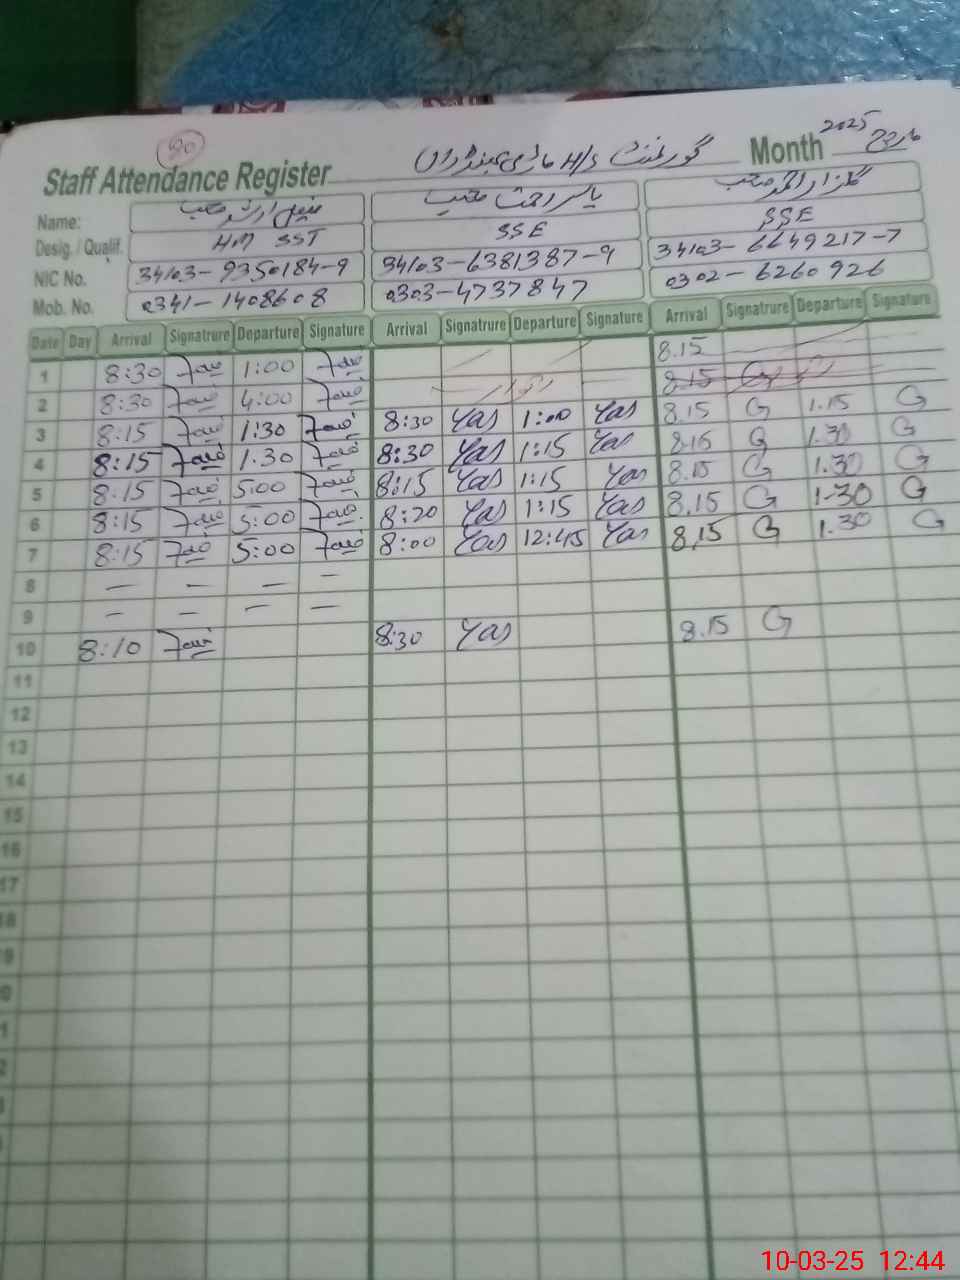 90
Staff Attendance Register گورنمنٹ H/S Month مارچ 2025
Name: صاحب یاسر صاحب گلزار احمد صاحب
Desig. / Qualif. HM SST SSE SSE
NIC No. 34103-9350184-9 34103-6381387-9 34103-6649217-7
Mob. No. 0341-1408608 0303-4737847 0302-6260926
Date Day Arrival Signatrure Departure Signature Arrival Signatrure Departure Signature Arrival Signatrure Departure Signature
1 8:30 1:00 8.15
2 8:30 4:00 8.15 G
3 8:15 1:30 8:30 Yas 1:00 Yas 8.15 G 1.15 G
4 8:15 1.30 8:30 Yas 1:15 Yas 8.15 G 1.30 G
5 8:15 5:00 8:15 Yas 1:15 Yas 8.15 G 1.30 G
6 8:15 5:00 8:20 Yas 1:15 Yas 8.15 G 1-30 G
7 8:15 5:00 8:00 Yas 12:45 Yas 8.15 G 1.30 G
8 — — — —
9 — — — —
10 8:10 8:30 Yas 8.15 G
11
12
13
14
15
16
17
18
10-03-25 12:44